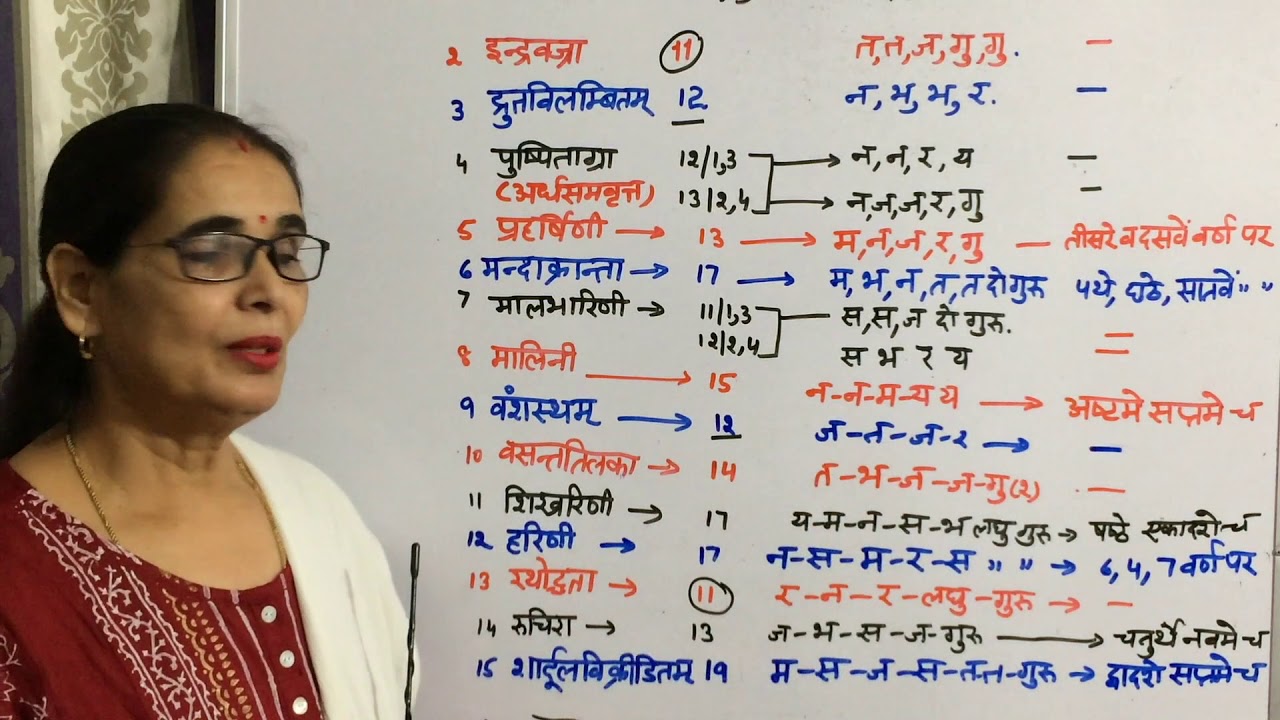 २ इन्द्रवज्रा 11 त,त,ज,गु,गु. —
3 द्रुतविलम्बितम् 12 न,भ,भ,र. —
४ पुष्पिताग्रा 1२/1,3 → न,न,र,य —
(अर्धसमवृत्त) 13/२,4 → न,ज,ज,र,गु —
5 प्रहर्षिणी → 13 → म,न,ज,र,गु — तीसरे व दसवें वर्ण पर
6 मन्दाक्रान्ता → 17 → म,भ,न,त,त दो गुरु ५थे, छठे, सातवें " "
7 मालभारिणी → 11/1,3 — स,स,ज दो गुरु. —
1२/२,4 स भ र य —
8 मालिनी → 15 न-न-म-य य → अष्टमे सप्तमे च
9 वंशस्थम् → 1२ ज-त-ज-र → —
10 वसन्ततिलका → 14 त-भ-ज-ज-गु(२) —
11 शिखरिणी → 17 य-म-न-स-भ लघु गुरु → षष्ठे एकादशे च
1२ हरिणी → 17 न-स-म-र-स " " → 6,4,7 वर्ण पर
13 रथोद्धता → 11 र-न-र-लघु-गुरु → —
14 रुचिरा → 13 ज-भ-स-ज-गुरु → चतुर्थे नवमे च
15 शार्दूलविक्रीडितम् 19 म-स-ज-स-त-त-गुरु → द्वादशे सप्तमे च